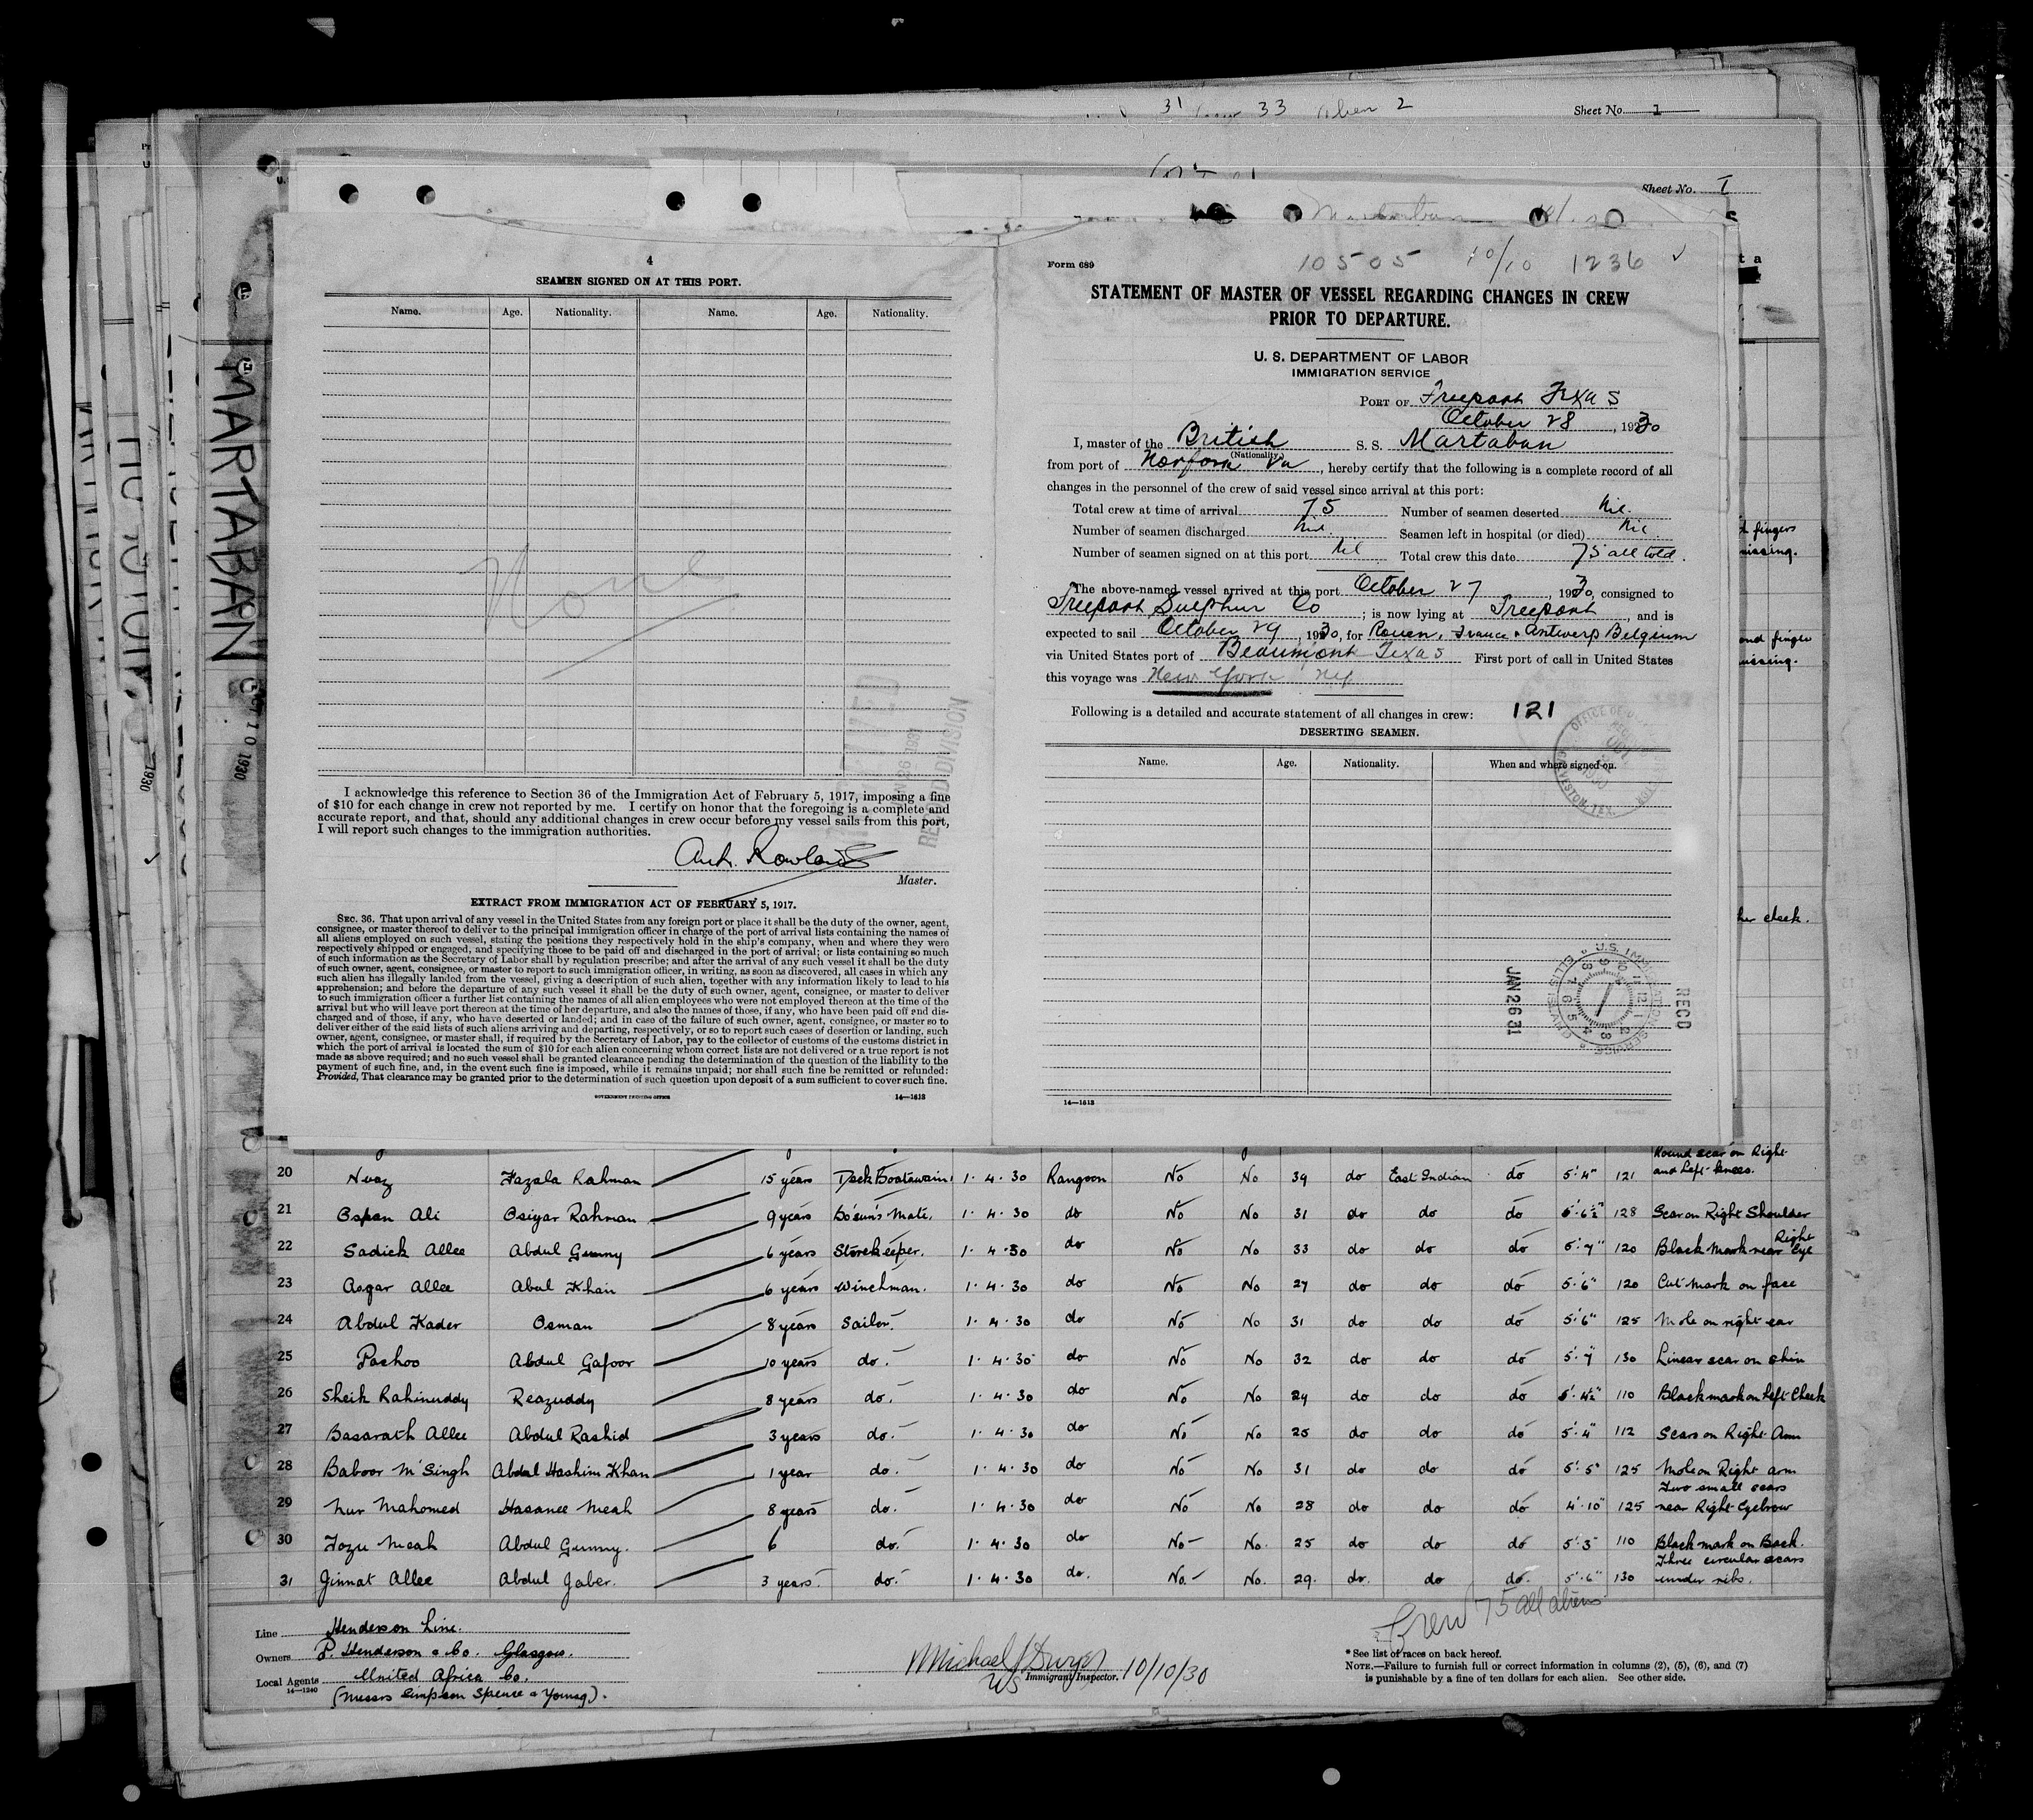 31 33 2
Sheet No. 1
Sheet No. I
MARTABAN
OCT 10 1930
1930
4
SEAMEN SIGNED ON AT THIS PORT.
Name. Age. Nationality. Name. Age. Nationality.
None
I acknowledge this reference to Section 36 of the Immigration Act of February 5, 1917, imposing a fine
of $10 for each change in crew not reported by me. I certify on honor that the foregoing is a complete and
accurate report, and that, should any additional changes in crew occur before my vessel sails from this port,
I will report such changes to the immigration authorities.
Master.
EXTRACT FROM IMMIGRATION ACT OF FEBRUARY 5, 1917.
SEC. 36. That upon arrival of any vessel in the United States from any foreign port or place it shall be the duty of the owner, agent,
consignee, or master thereof to deliver to the principal immigration officer in charge of the port of arrival lists containing the names of
all aliens employed on such vessel, stating the positions they respectively hold in the ship's company, when and where they were
respectively shipped or engaged, and specifying those to be paid off and discharged in the port of arrival; or lists containing so much
of such information as the Secretary of Labor shall by regulation prescribe; and after the arrival of any such vessel it shall be the duty
of such owner, agent, consignee, or master to report to such immigration officer, in writing, as soon as discovered, all cases in which any
such alien has illegally landed from the vessel, giving a description of such alien, together with any information likely to lead to his
apprehension; and before the departure of any such vessel it shall be the duty of such owner, agent, consignee, or master to deliver
to such immigration officer a further list containing the names of all alien employees who were not employed thereon at the time of the
arrival but who will leave port thereon at the time of her departure, and also the names of those, if any, who have been paid off and dis-
charged and of those, if any, who have deserted or landed; and in case of the failure of such owner, agent, consignee, or master so to
deliver either of the said lists of such aliens arriving and departing, respectively, or so to report such cases of desertion or landing, such
owner, agent, consignee, or master shall, if required by the Secretary of Labor, pay to the collector of customs of the customs district in
which the port of arrival is located the sum of $10 for each alien concerning whom correct lists are not delivered or a true report is not
made as above required; and no such vessel shall be granted clearance pending the determination of the question of the liability to the
payment of such fine, and, in the event such fine is imposed, while it remains unpaid; nor shall such fine be remitted or refunded:
Provided, That clearance may be granted prior to the determination of such question upon deposit of a sum sufficient to cover such fine.
GOVERNMENT PRINTING OFFICE 14—1613
Form 689
10505 10/10 1236
STATEMENT OF MASTER OF VESSEL REGARDING CHANGES IN CREW
PRIOR TO DEPARTURE.
U. S. DEPARTMENT OF LABOR
IMMIGRATION SERVICE
PORT OF Freeport Texas
October 28, 1930
I, master of the British S. S. Martaban
(Nationality)
from port of Norfork Va, hereby certify that the following is a complete record of all
changes in the personnel of the crew of said vessel since arrival at this port:
Total crew at time of arrival 75 Number of seamen deserted Nil.
Number of seamen discharged Nil Seamen left in hospital (or died) Nil
Number of seamen signed on at this port Nil Total crew this date 75 all told.
The above-named vessel arrived at this port October 27, 1930, consigned to
Freeport Sulphur Co; is now lying at Freeport, and is
expected to sail October 29, 1930, for Rouen, France & Antwerp Belgium
via United States port of Beaumont Texas First port of call in United States
this voyage was New York NY
Following is a detailed and accurate statement of all changes in crew: 121
DESERTING SEAMEN.
Name. Age. Nationality. When and where signed on.
JAN 26 31
REC'D
14—1613
fingers
missing.
finger
missing.
cheek.
Round scar on Right
20 Nwaz Fazala Rahman 15 years Deck Boatswain 1.4.30 Rangoon No No 39 do East Indian do 5'.4" 121 and Left knees.
21 Ospan Ali Osiyar Rahman 9 years Bo'sun's Mate. 1.4.30 do No No 31 do do do 5'.6½" 128 Scar on Right Shoulder
22 Sadick Allee Abdul Gunny 6 years Storekeeper. 1.4.30 do No No 33 do do do 5'.7" 120 Black Mark near Right Eye
23 Asgar Allee Abul Khair 6 years Winchman. 1.4.30 do No No 27 do do do 5'.6" 120 Cut Mark on face
24 Abdul Kader Osman 8 years Sailor. 1.4.30 do No No 31 do do do 5'.6" 125 Mole on right ear
25 Pachoo Abdul Gafoor 10 years do. 1.4.30 do No No 32 do do do 5'.7" 130 Linear scar on shin
26 Sheik Rahinuddy Reazuddy 8 years do. 1.4.30 do No No 29 do do do 5'.4½" 110 Black mark on Left Cheek
27 Basarath Allee Abdul Rashid 3 years do. 1.4.30 do No No 25 do do do 5'.4" 112 Scars on Right Arm
28 Baboor M'Singh Abdul Hashim Khan 1 year do. 1.4.30 do No No 31 do do do 5'.5" 125 Mole on Right arm
Two small scars
29 Nur Mahomed Hasanee Meah 8 years do. 1.4.30 do No No 28 do do do 4'.10" 125 near Right Eyebrow
30 Fozu Meah Abdul Gunny. 6 do. 1.4.30 do No No. 25 do do do 5'.3" 110 Black mark on Back.
Three circular scars
31 Jinnat Allee Abdul Jaber. 3 years. do. 1.4.30 do. No. No. 29. do. do do. 5'.6" 130 under ribs.
Crew 75 all aliens
Line Henderson Line.
Owners P. Henderson & Co. Glasgow.
Local Agents United Africa Co.
14—1240
(Messrs Simpson Spence & Young).
Immigrant Inspector. 10/10/30
* See list of races on back hereof.
NOTE.—Failure to furnish full or correct information in columns (2), (5), (6), and (7)
is punishable by a fine of ten dollars for each alien. See other side.